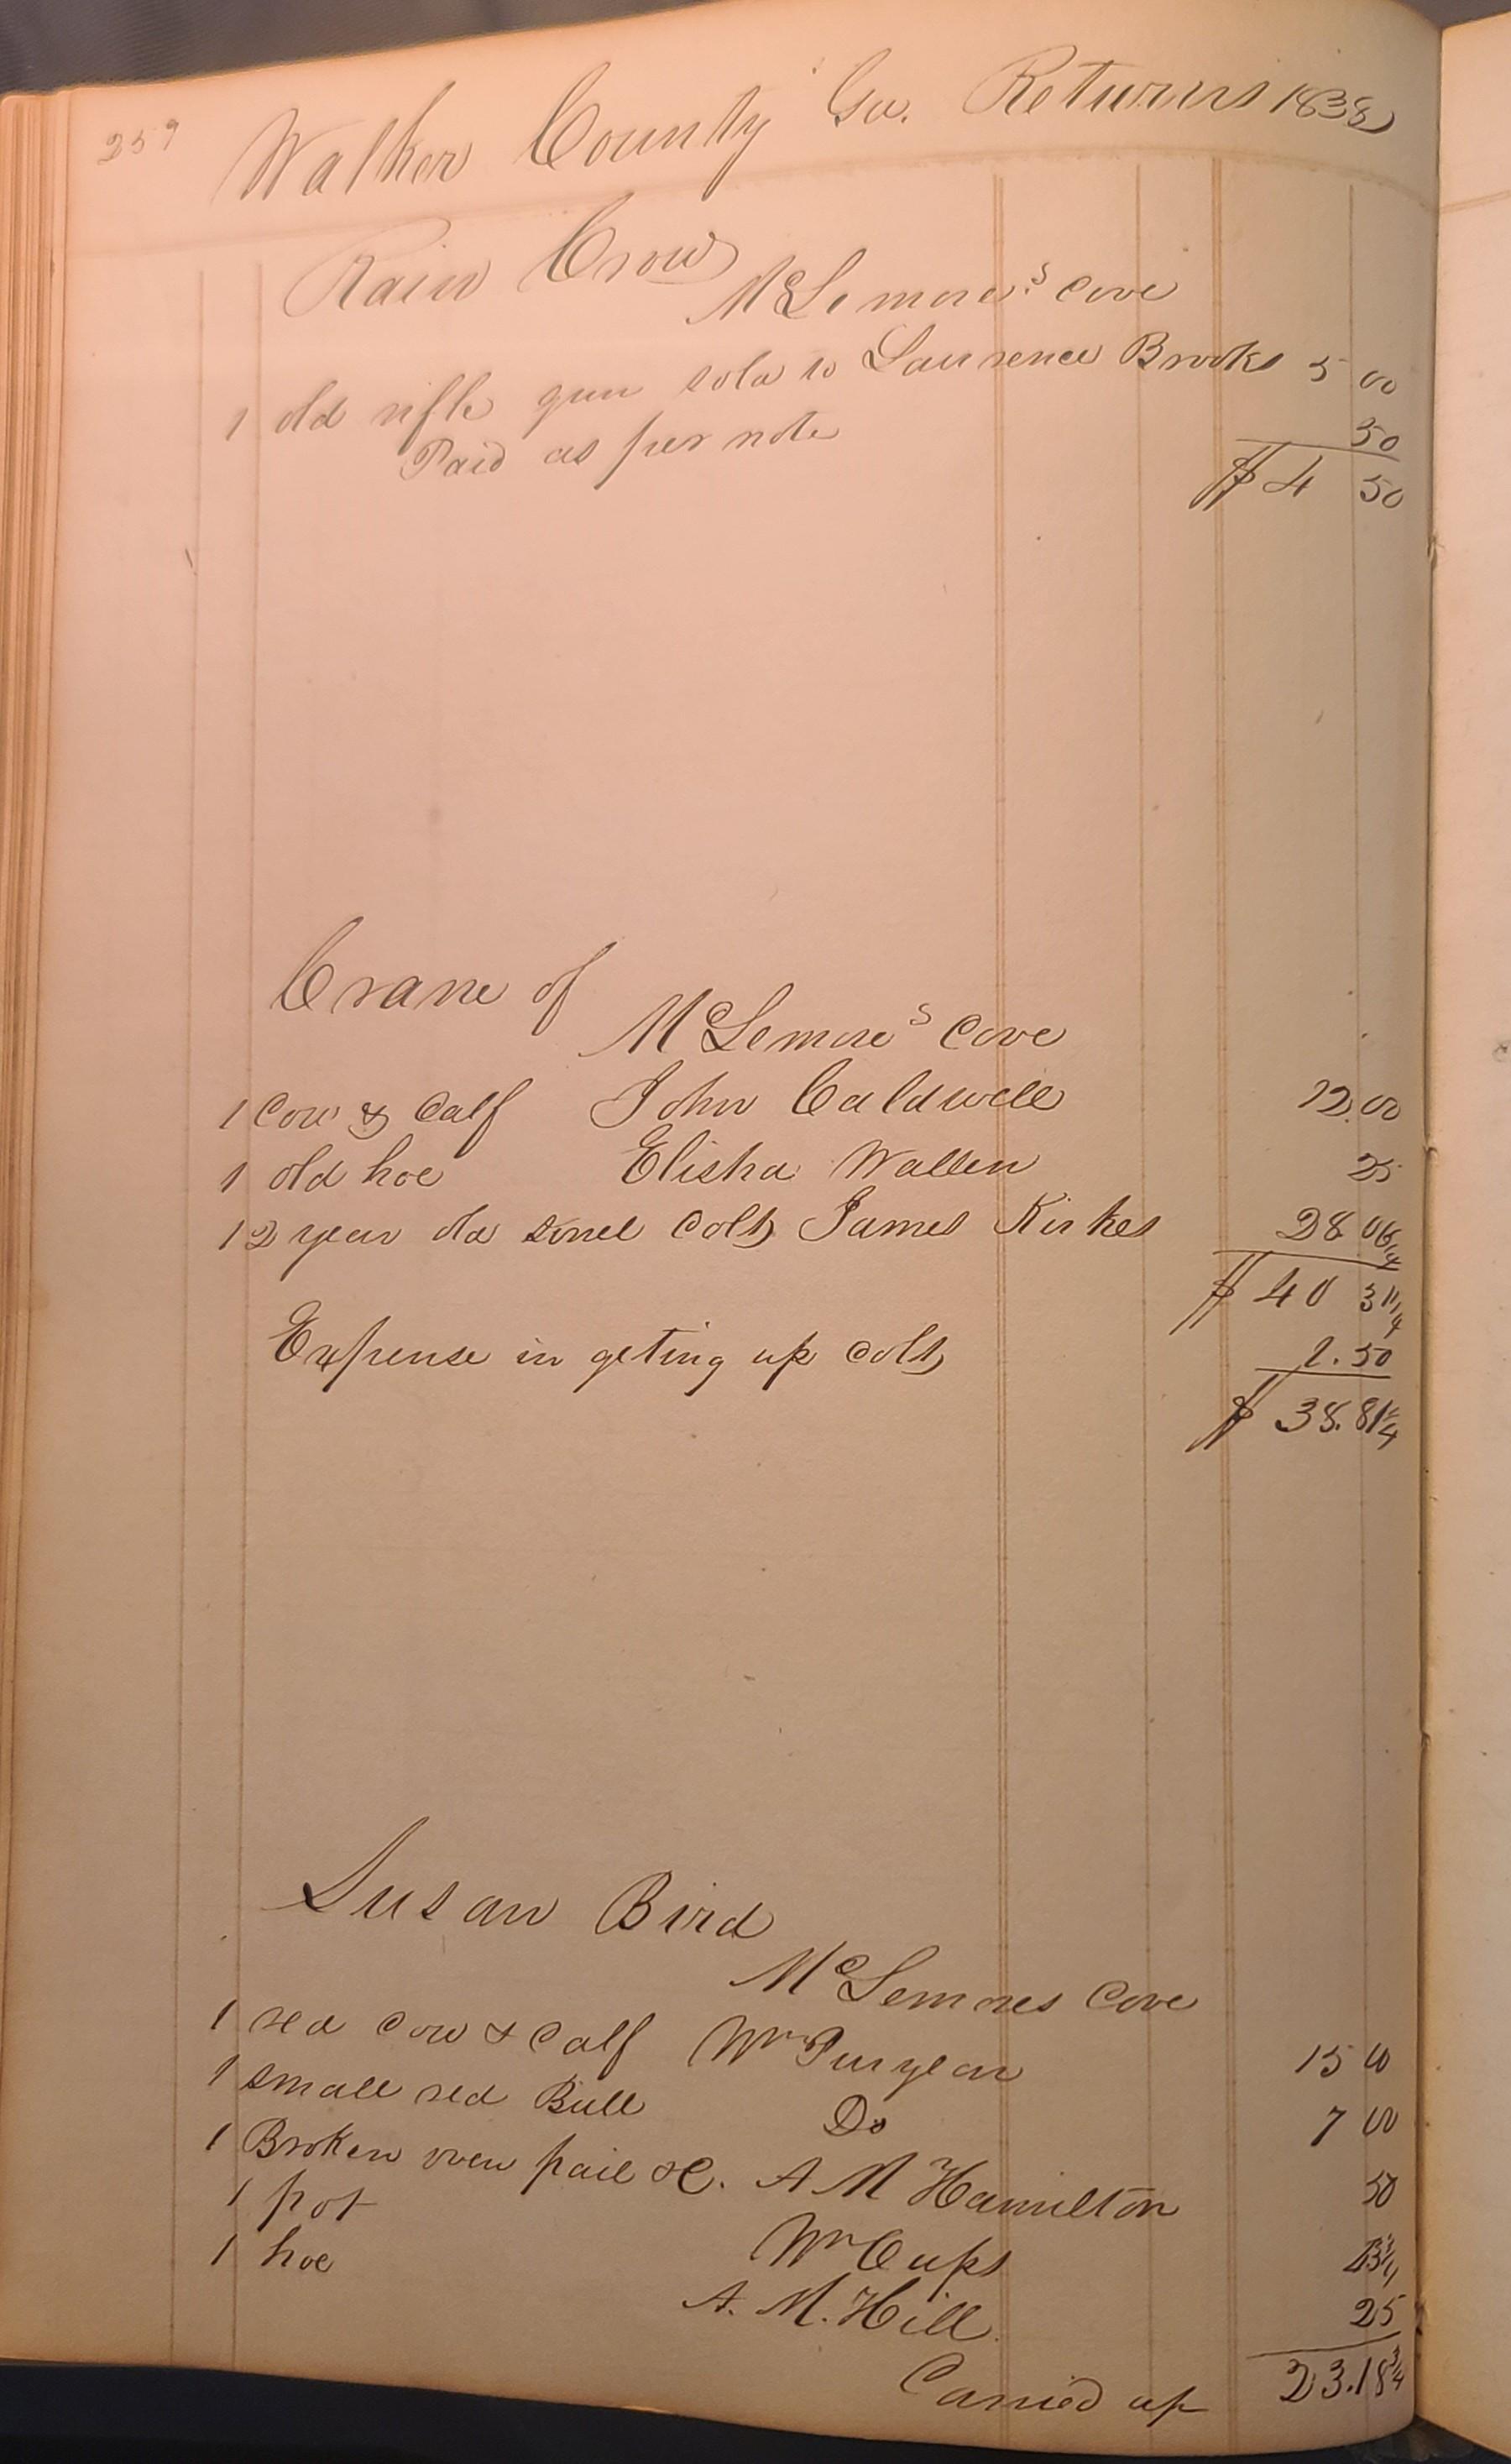 259
Walker County Ga. Returns 1838
Rain Crow
McLemore's Cove
1 old rifle gun sold to Laurence Brooks 5 00
Paid as per note 50
$ 4 50
Crane of
McLemore's Cove
1 Cow & Calf John Caldwell 12.00
1 old hoe Elisha Wallen 25
1 2 year old sorrel Colt James Kirkes 28 06 1/4
$ 40 31 1/4
Expense in geting up Colt 1.50
$ 38.81 1/4
Susan Bird
McLemores Cove
1 red Cow & Calf Wm Puryear 15 00
1 small red Bull Do 7 00
1 Broken oven pail &C. A M Hamilton 50
1 pot Wm Cups
1 hoe A. M. Hill 25
Carried up 23.18 3/4